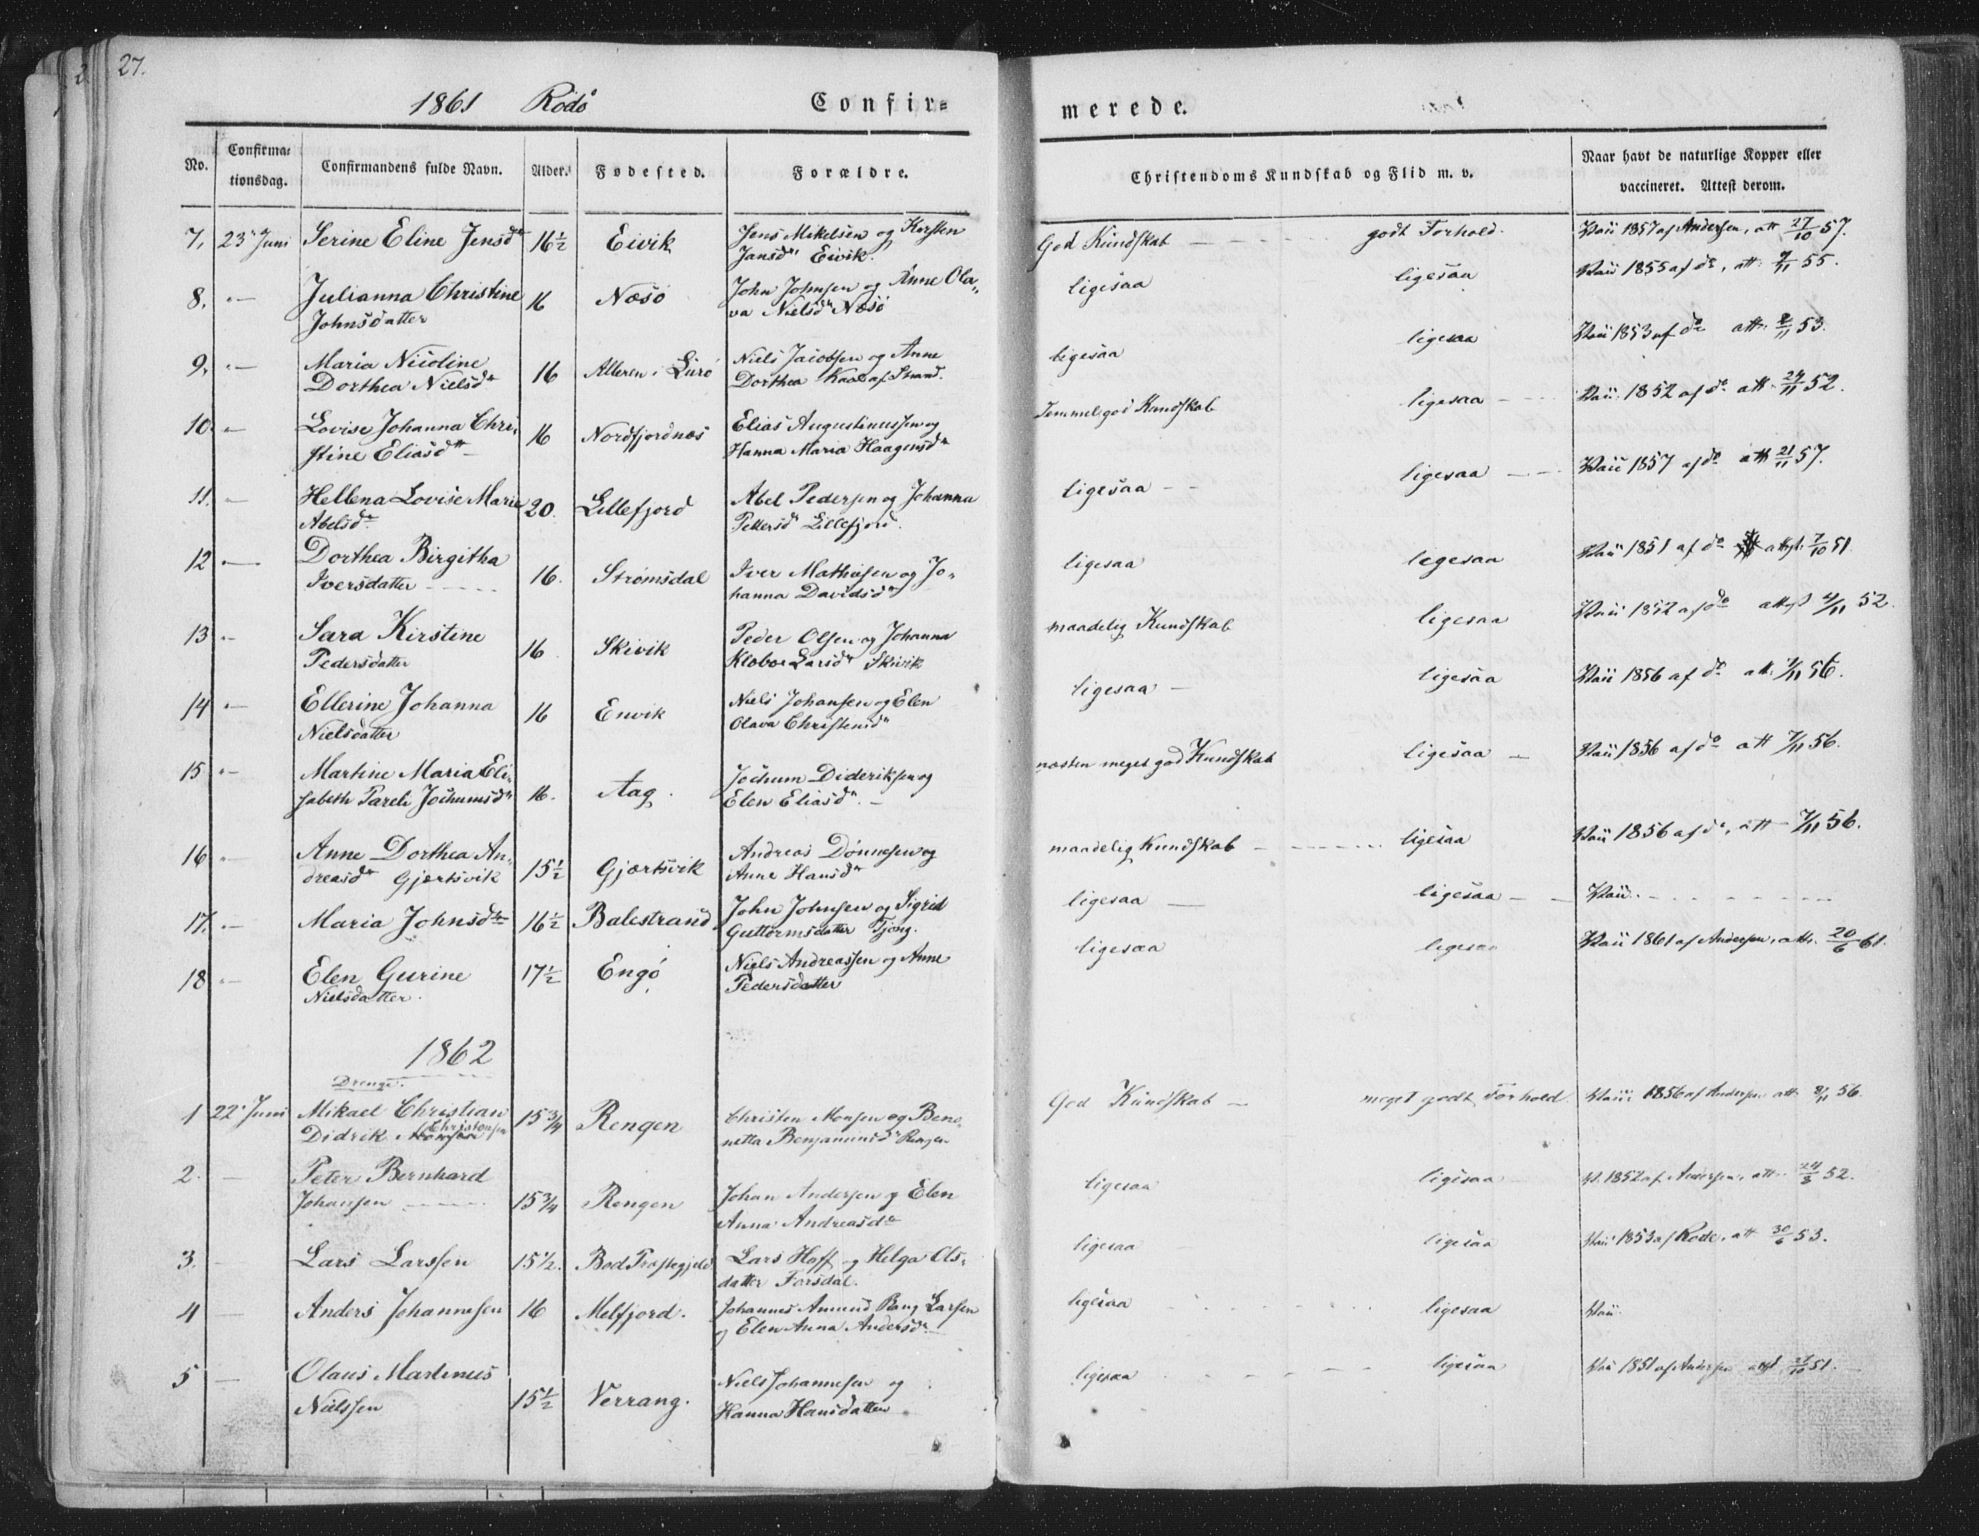 27.
1861 Rödö Confir= merede.
No. Confirma= tionsdag. Confirmandens fulde Navn. Alder. Fødested. Forældre. Christendoms Kundskab og Flid m. v. Naar havt de naturlige Kopper eller vaccineret. Attest derom.
7. 23' Juni Serine Eline Jensdtr 16½ Eivik Jens Mikelsen og Karsten God Kundskab godt Forhold. Vacc 1857 af Andersen, att 27/10 57.
Jansdtr Eivik.
8. "— Julianna Christine 16 Næsö John Johnsen og Anne Ola- ligesaa ligesaa Vacc 1855 af do, att. 7/11 55.
Johnsdatter va Nielsdtr Næsö
9. "— Maria Nicoline 16 Alleren i Lurö Niels Jacobsen og Anne ligesaa ligesaa Vacc 1853 af do att. 8/11 53.
Dorthea Nielsdtr Dorthea Strand.
10. "— Lovise Johanna Chri- 16 Nordfjordnæs Elias Augustinussen og Temmelig god Kundskab ligesaa Vacc. 1852 af do att. 24/11 52.
stine Eliasdtr Hanna Maria Haagensdtr
11. "— Hellena Lovise Marie 20. Lillefjord Abel Pedersen og Johanna ligesaa ligesaa Vacc 1857 af do att 21/11 57.
Abelsdtr Pettersdtr Lillefjord.
12 "— Dorthea Birgitha 16. Strömsdal Iver Mathiesen og Jo- ligesaa ligesaa Vacc 1851 af do attst. 7/10 51.
Iversdatter hanna Davidsdtr
13 "— Sara Kirstine 16 Skivik Peder Olsen og Johanna maadelig Kundskab ligesaa Vacc 1852 af do attst 4/11 52.
Pedersdatter Larsdtr Skivik
14 "— Ellerine Johanna 16 Envik Niels Johansen og Elen ligesaa ligesaa Vacc 1856 af do att. 7/11 56.
Nielsdatter Olava Christensdtr
15 "— Martine Maria Eli- 16. Aag. Jochum Dideriksen og næsten meget god Kundskab ligesaa Vacc 1856 af do att 7/11 56.
sabeth Pareli Jochumsdtr Elen Eliasdtr.
16 "— Anne Dorthea An- 15½ Gjærtsvik Andreas Dönnesen og maadelig Kundskab ligesaa Vacc 1856 af do, att 7/11 56.
dreasdtr Gjærtsvik Anne Hansdtr
17. "— Maria Johnsdtr 16½ Balestrand John Johnsen og Sigrid ligesaa ligesaa Vacc.
Guttormsdatter Tjong.
18 "— Elen Gurine 17½ Engö Niels Andreassen og Anne ligesaa ligesaa Vacc 1861 af Andersen, att. 20/6 61.
Nielsdatter. Pedersdatter
1862
Drenge.
1 22' Juni Mikael Christian 15¾ Rengen Christen Monsen og Bene- God Kundskab meget godt Forhold Vacc. 1856 af Andersen att. 8/11 56.
Didrik Monsen Christensen netta Benjaminsdtr Rengen
2. — Peter Bernhard ligesaa ligesaa V. 1852 af Andersen, att. 24/8 52.
Johansen 15¾ Rengen Johan Andersen og Elen
Anna Andreasdtr
3. — Lars Larssen 15½. Bod Præstegjeld Lars Hoff og Helga Ols- ligesaa ligesaa Vacc 1853 af Rode, att 30/6 53.
datter Forsdal.
4 — Anders Johannesen 16 Melfjord. Johannes Amund Bang Larsen ligesaa ligesaa Vacc
og Elen Anna Andersdtr
5 — Olaus Martinus 15½ Verrang. Niels Johannesen og ligesaa ligesaa Vacc 1851 af Andersen attst 27/10 51.
Nielssen Hanna Hansdatter